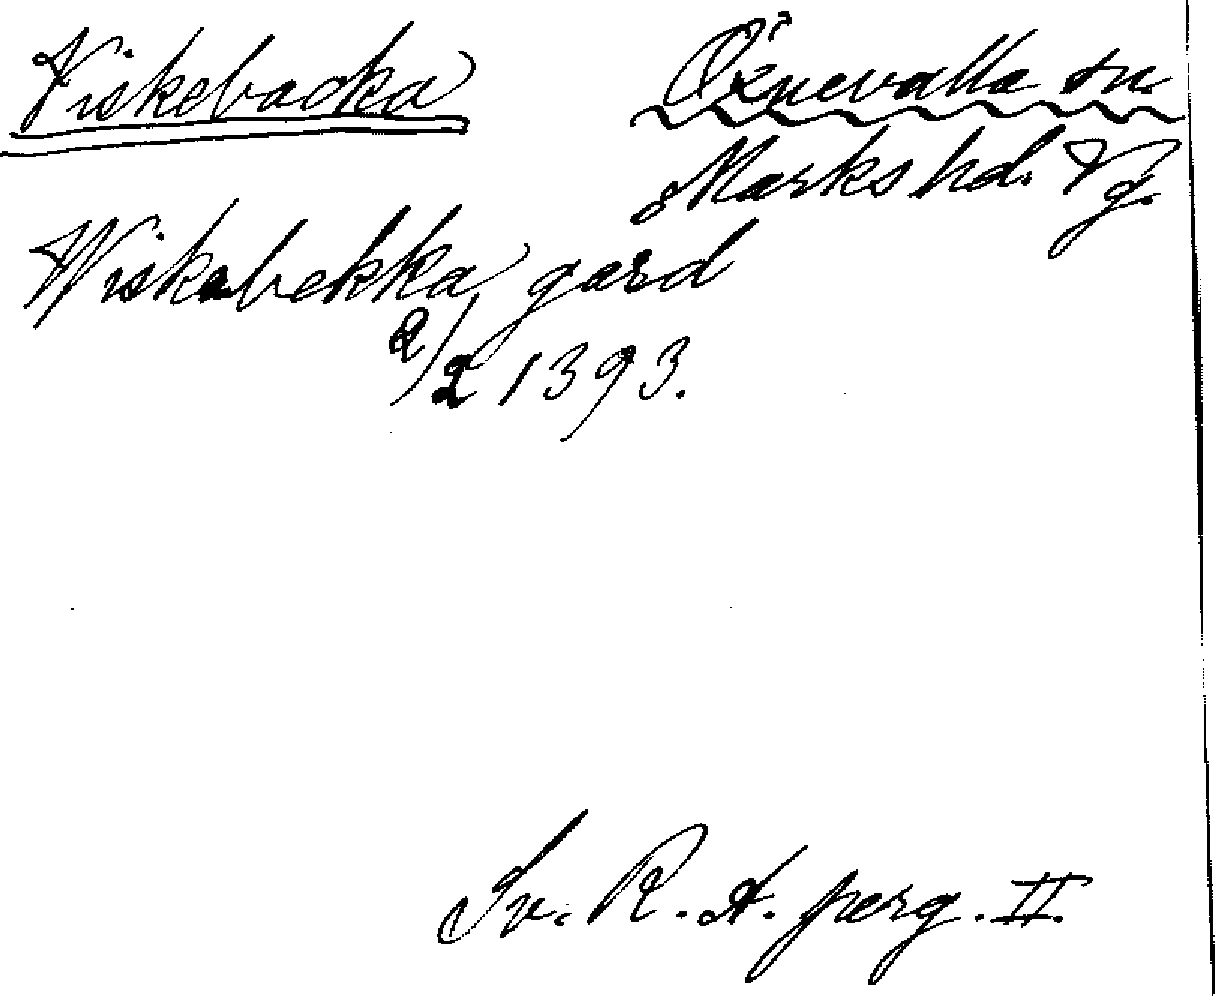 Viskebacka
Öxnevalla sn.
Marks hd. Vg.
Wiskabekka gard
2/2 1393.
Sv. R. A. perg. II.